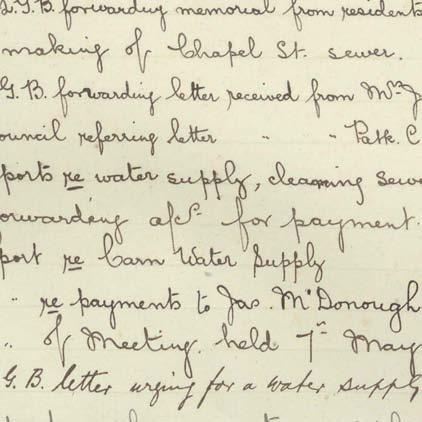 L.G.B. forwarding memorial from residents
making of Chapel St. sewer.
G.B. forwarding letter received from Mrs J
ouncil referring letter " " Patk. C
ports re water supply, cleaning sewe
orwarding a/cs. for payment.
port re Carn Water Supply
" re payments to Jas. McDonough
" of Meeting held 7th May
G.B. letter urging for a water supply